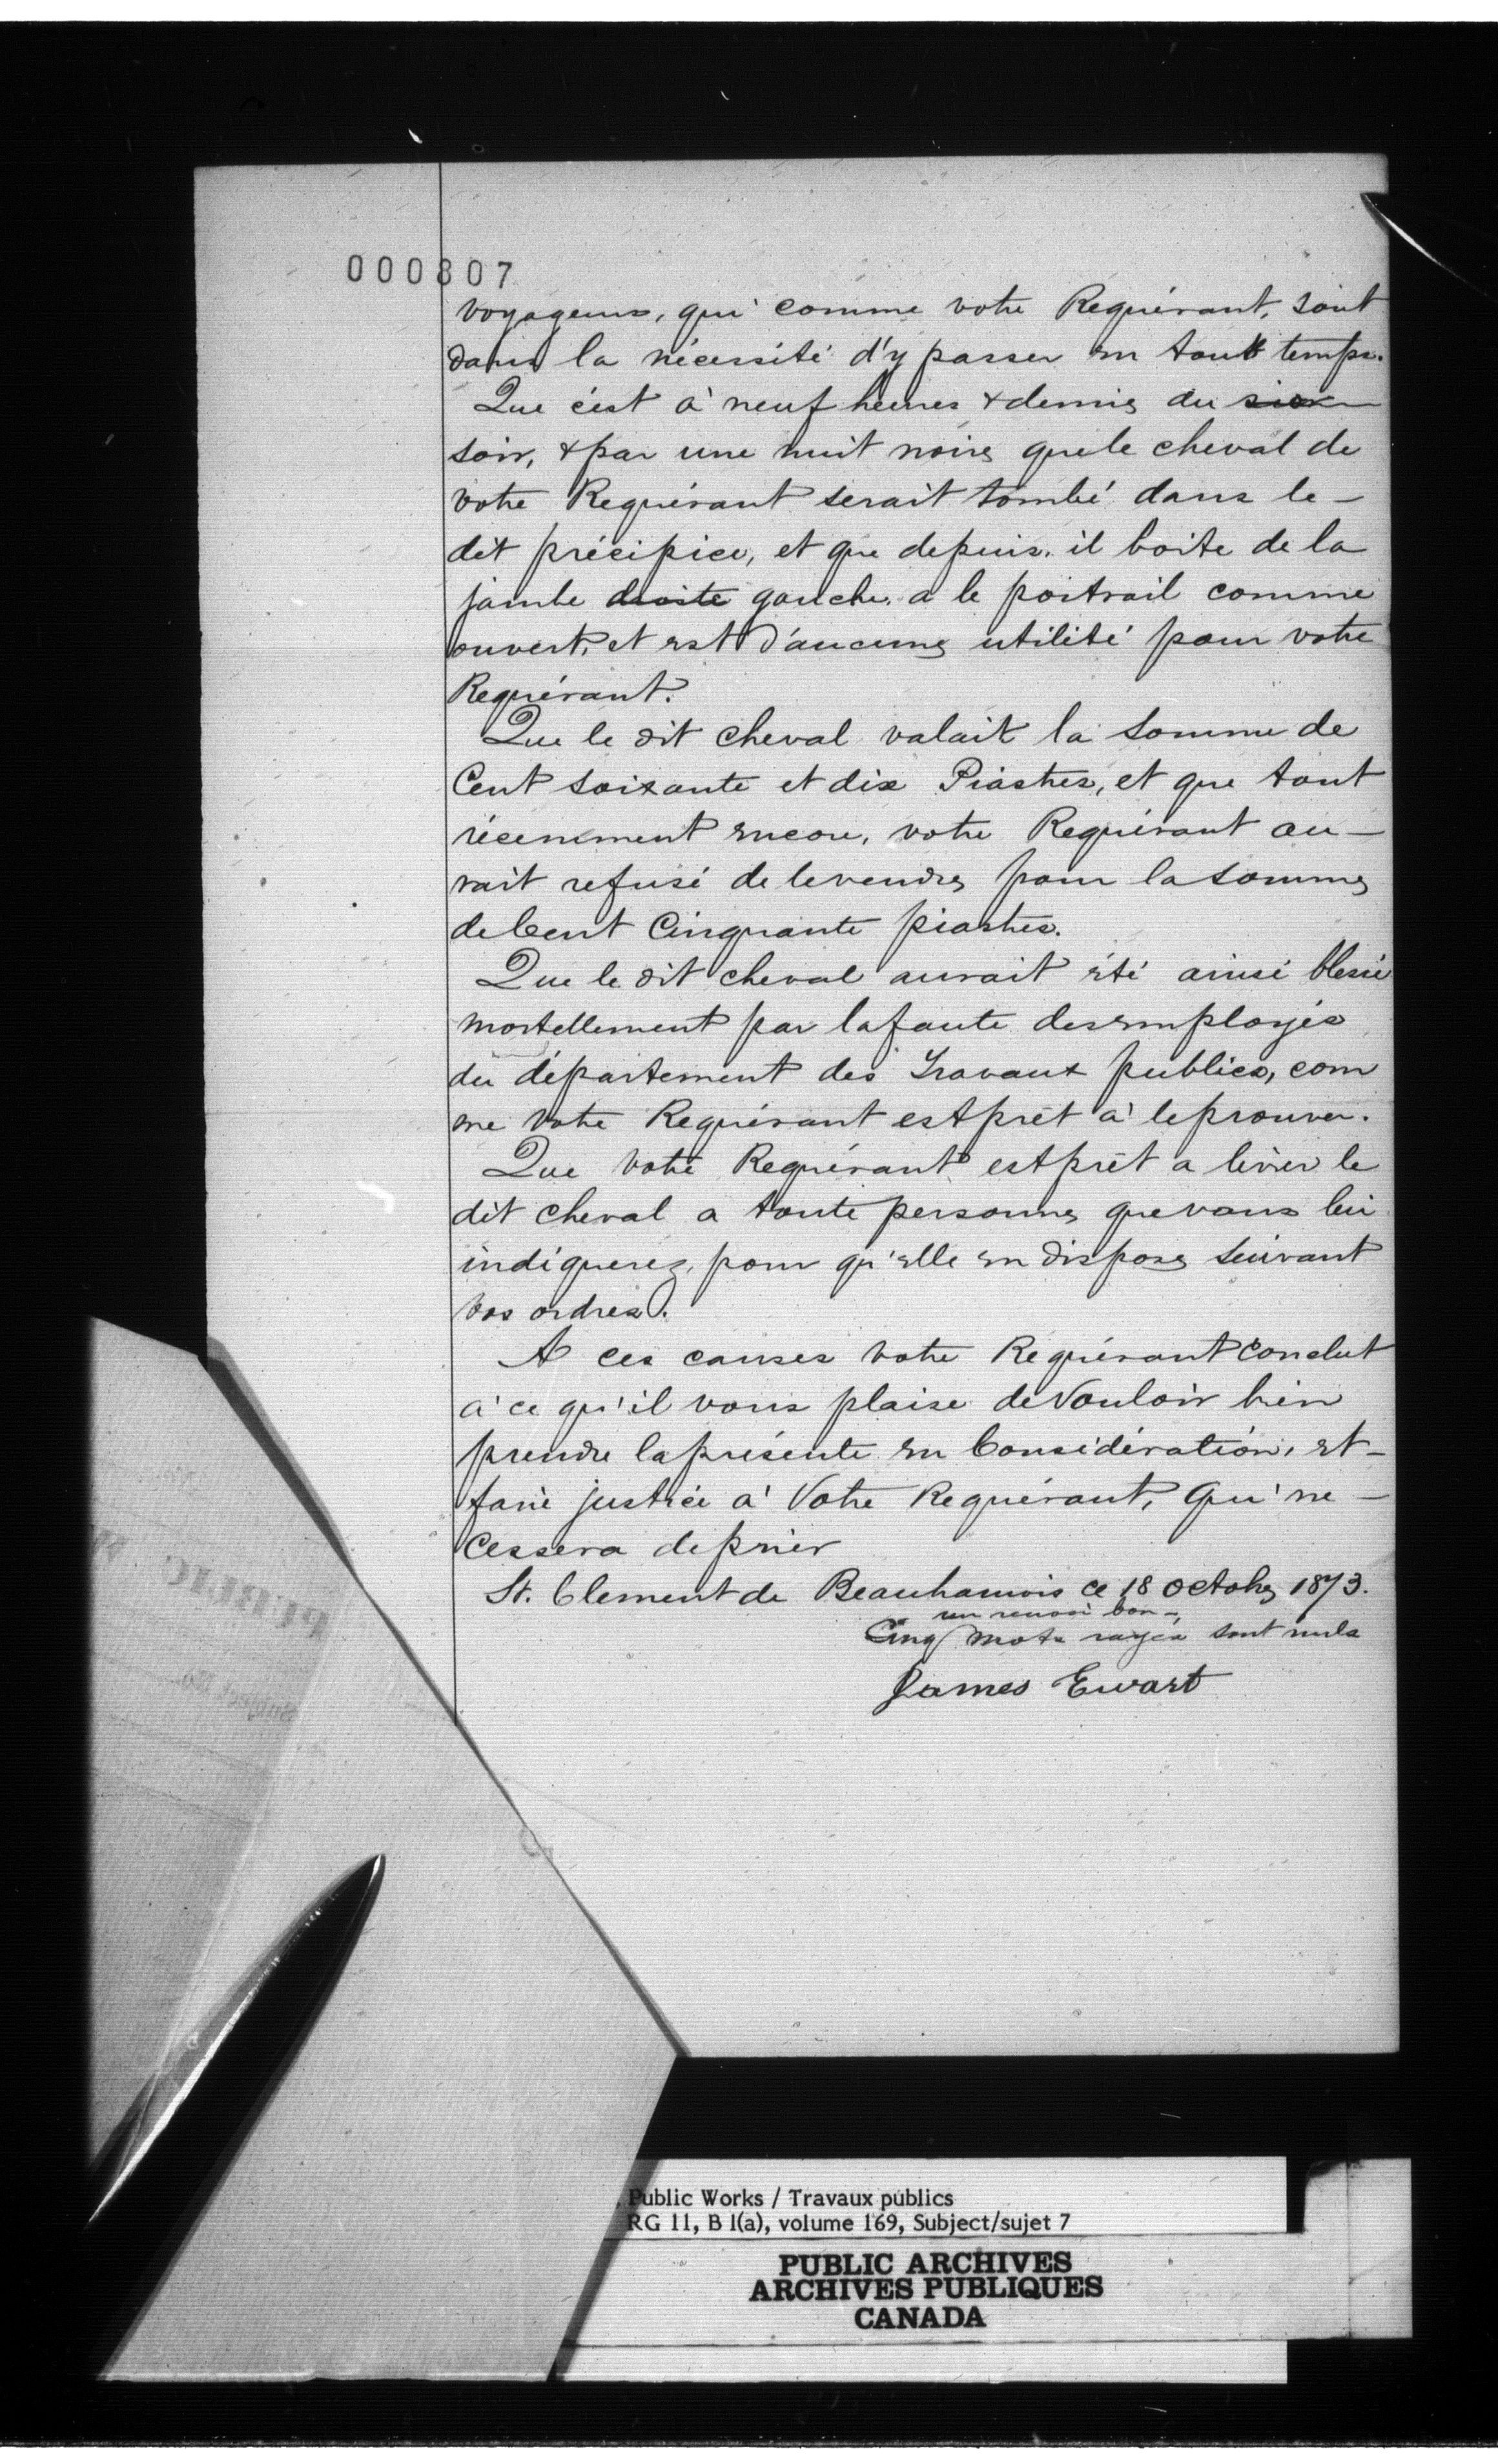 000807
voyageurs, qui comme votre Requérant, sont
dans la nécessité d'y passer en tout temps.
Que c'est à neuf heures & demie du six
soir, & par une nuit noire que le cheval de
votre Requérant serait tombé dans le -
dit précipice, et que depuis, il boite de la
jambe droite gauche, a le poitrail comme
ouvert, et est d'aucune utilité pour votre
Requérant.
Que le dit cheval valait la somme de
Cent soixante et dix Piastres, et que tout
récemment encore, votre Requérant au -
rait refusé de le vendre pour la somme
de Cent Cinquante piastres.
Que le dit cheval aurait été ainsi blessé
mortellement par la faute des employés
du département des Travaux publics, com
me Votre Requérant est prêt à le prouver.
Que Votre Requérant est prêt a livrer le
dit cheval a toute personne que vous lui
indiquerez, pour qu'elle en dispose suivant
vos ordres.
A ces causes votre Requérant conclut
à ce qu'il vous plaise de Vouloir bien
prendre la présente en Considération, et -
faire justice à Votre Requérant, Qui ne -
Cessera de prier
St. Clement de Beauharnois ce 18 octobre 1873.
un renvoi bon -,
Cinq mots rayés sont nuls
James Ewart
PUBLIC
Subject No.
Public Works / Travaux publics
RG 11, B 1(a), volume 169, Subject/sujet 7
PUBLIC ARCHIVES
ARCHIVES PUBLIQUES
CANADA